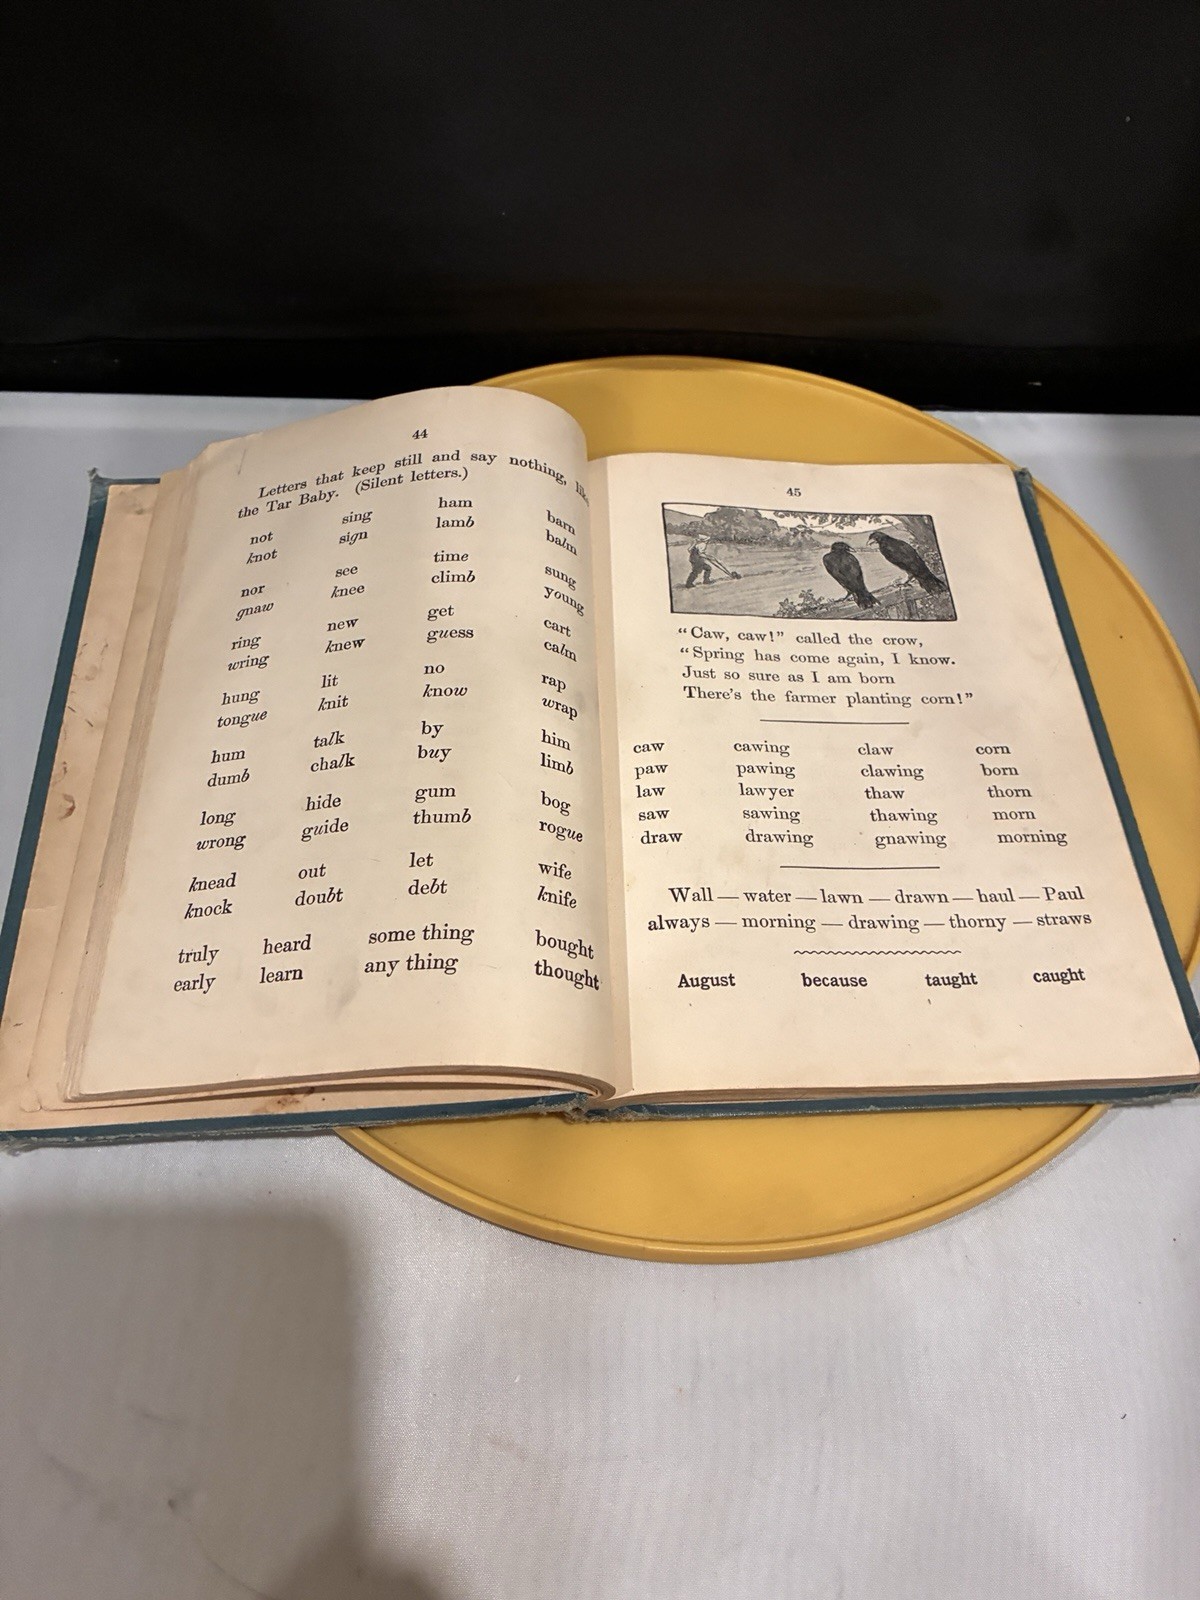 44
Letters that keep still and say nothing, like
the Tar Baby. (Silent letters.)
not sing ham barn
knot sign lamb balm
nor see time sung
gnaw knee climb young
ring new get cart
wring knew guess calm
hung lit no rap
tongue knit know wrap
hum talk by him
dumb chalk buy limb
long hide gum bog
wrong guide thumb rogue
knead out let wife
knock doubt debt knife
truly heard some thing bought
early learn any thing thought
45
"Caw, caw!" called the crow,
"Spring has come again, I know.
Just so sure as I am born
There's the farmer planting corn!"
caw cawing claw corn
paw pawing clawing born
law lawyer thaw thorn
saw sawing thawing morn
draw drawing gnawing morning
Wall — water — lawn — drawn — haul — Paul
always — morning — drawing — thorny — straws
August because taught caught